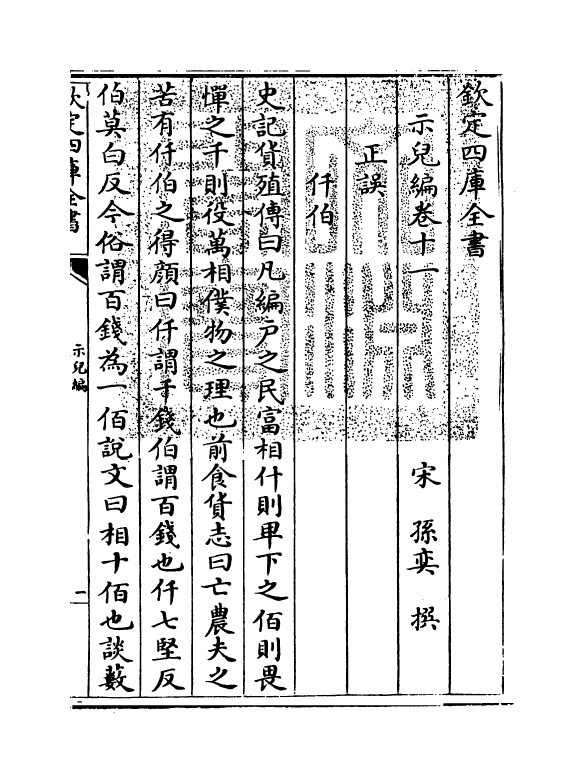 欽定四庫全書
示兒編卷十一　宋　孫奕　撰
正誤
仟伯
史記貨殖傳曰凡編户之民富相什則卑下之佰則畏
憚之千則役萬相僕物之理也前食貨志曰亡農夫之
苦有仟伯之得顔曰仟謂千錢伯謂百錢也仟七堅反
伯莫白反今俗謂百錢為一佰說文曰相十佰也談藪
欽定四庫全書
示兒編
一